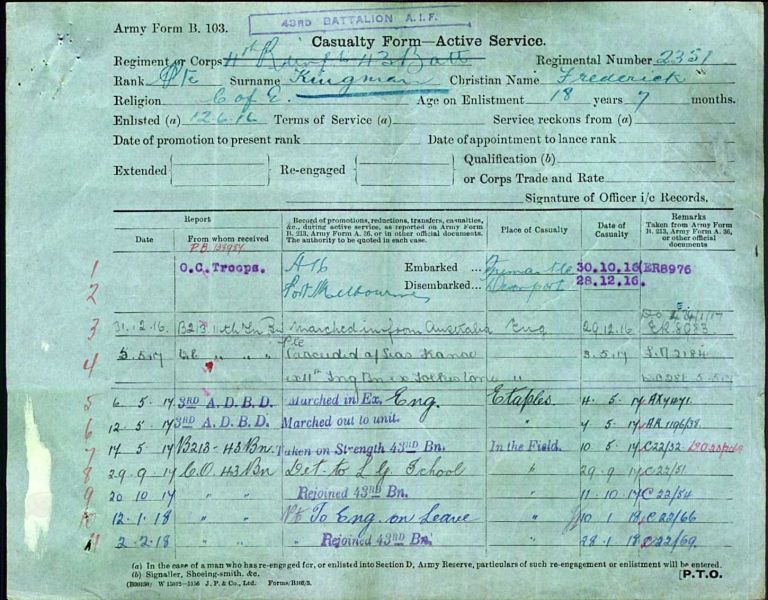 Army Form B. 103.
43RD BATTALION A.I.F.
Casualty Form—Active Service.
Regiment or Corps 43 Batt Regimental Number 2351
Rank Pte Surname Kingman Christian Name Frederick
Religion C of E. Age on Enlistment 18 years 7 months.
Enlisted (a) 12.6.16 Terms of Service (a) Service reckons from (a)
Date of promotion to present rank Date of appointment to lance rank
Extended Re-engaged Qualification (b)
or Corps Trade and Rate
Signature of Officer i/c Records.
Report
Date From whom received
Record of promotions, reductions, transfers, casualties, &c., during active service, as reported on Army Form B. 213, Army Form A. 36, or in other official documents. The authority to be quoted in each case.
Place of Casualty
Date of Casualty
Remarks
Taken from Army Form B. 213, Army Form A. 36, or other official documents
1 O.C. Troops. Embarked ... Fremantle 30.10.16 ER8976
2 Port Melbourne Disembarked ... Devonport 28.12.16.
3 31.12.16. B213 11th Tn Bn Marched in from Australia Eng 29.12.16
4 5.5.17 Pte Proceeded o/seas France 3.5.17
ex 11th Tng Bn ex Folkestone
5 6 5 17 3RD A.D.B.D. Marched in Ex. Eng. Etaples 4 5 17
6 12 5 17 3RD A.D.B.D. Marched out to unit. " 17
7 17 5 17 B213- 43 Bn. Taken on Strength 43RD Bn. In the Field. 10 5 17 C22/32
8 29 9 17 C.O 43 Bn Det. to L.G. School " 29 9 17 C22/51
9 20 10 17 " " Rejoined 43RD Bn. " 11 10 17 C22/54
10 12.1.18 " " To Eng. on Leave " 10 1 18 C22/66
11 2.2.18 " " " Rejoined 43RD Bn. " 28.1.18 C22/69.
(a) In the case of a man who has re-engaged for, or enlisted into Section D, Army Reserve, particulars of such re-engagement or enlistment will be entered.
(b) Signaller, Shoeing-smith, &c.
[P.T.O.
J. P. & Co., Ltd.